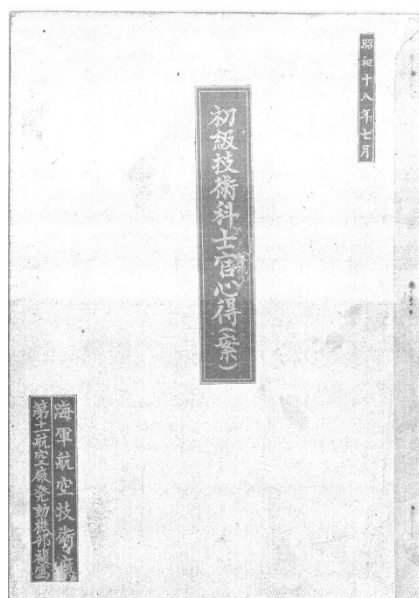 昭和十八年七月
初級技術科士官心得(案)
海軍航空技術廠
第十一航空廠発動機部複寫